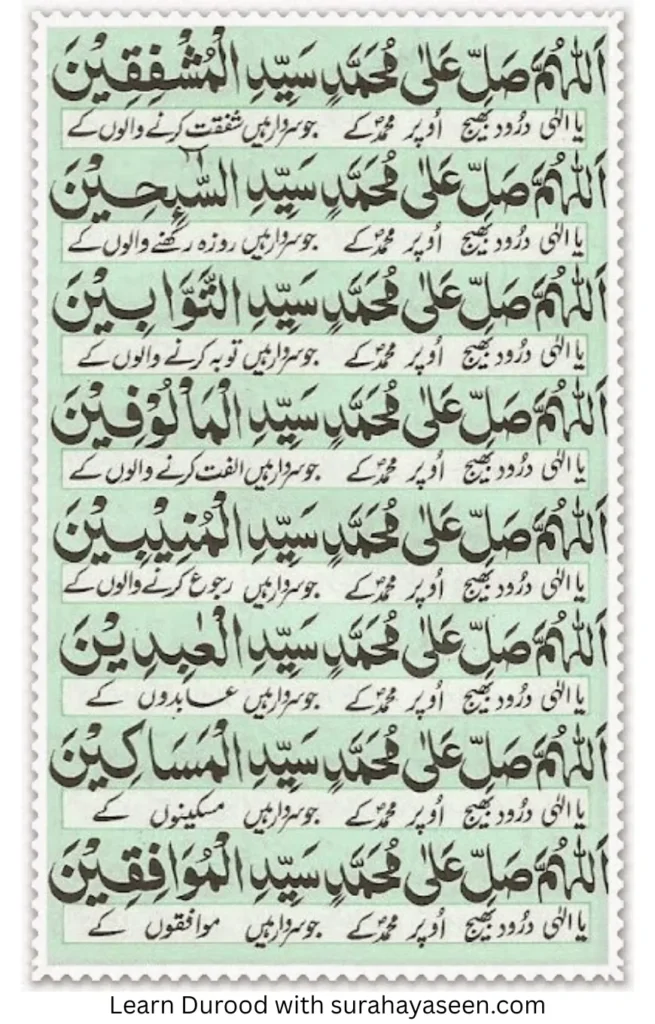 اَللّٰهُمَّ صَلِّ عَلٰى مُحَمَّدٍ سَيِّدِ الْمُشْفِقِيْنَ
یا الٰہی درُود بھیج اُوپر محمدؐ کے جو سردار ہیں شفقت کرنے والوں کے
اَللّٰهُمَّ صَلِّ عَلٰى مُحَمَّدٍ سَيِّدِ السّٰٓئِحِيْنَ
یا الٰہی درُود بھیج اُوپر محمدؐ کے جو سردار ہیں روزہ رکھنے والوں کے
اَللّٰهُمَّ صَلِّ عَلٰى مُحَمَّدٍ سَيِّدِ التَّوَّابِيْنَ
یا الٰہی درُود بھیج اُوپر محمدؐ کے جو سردار ہیں توبہ کرنے والوں کے
اَللّٰهُمَّ صَلِّ عَلٰى مُحَمَّدٍ سَيِّدِ الْمَاْلُوْفِيْنَ
یا الٰہی درُود بھیج اُوپر محمدؐ کے جو سردار ہیں الفت کرنے والوں کے
اَللّٰهُمَّ صَلِّ عَلٰى مُحَمَّدٍ سَيِّدِ الْمُنِيْبِيْنَ
یا الٰہی درُود بھیج اُوپر محمدؐ کے جو سردار ہیں رجوع کرنے والوں کے
اَللّٰهُمَّ صَلِّ عَلٰى مُحَمَّدٍ سَيِّدِ الْعٰبِدِيْنَ
یا الٰہی درُود بھیج اُوپر محمدؐ کے جو سردار ہیں عابدوں کے
اَللّٰهُمَّ صَلِّ عَلٰى مُحَمَّدٍ سَيِّدِ الْمَسَاكِيْنَ
یا الٰہی درُود بھیج اُوپر محمدؐ کے جو سردار ہیں مسکینوں کے
اَللّٰهُمَّ صَلِّ عَلٰى مُحَمَّدٍ سَيِّدِ الْمُوَافِقِيْنَ
یا الٰہی درُود بھیج اُوپر محمدؐ کے جو سردار ہیں موافقوں کے
Learn Durood with surahayaseen.com